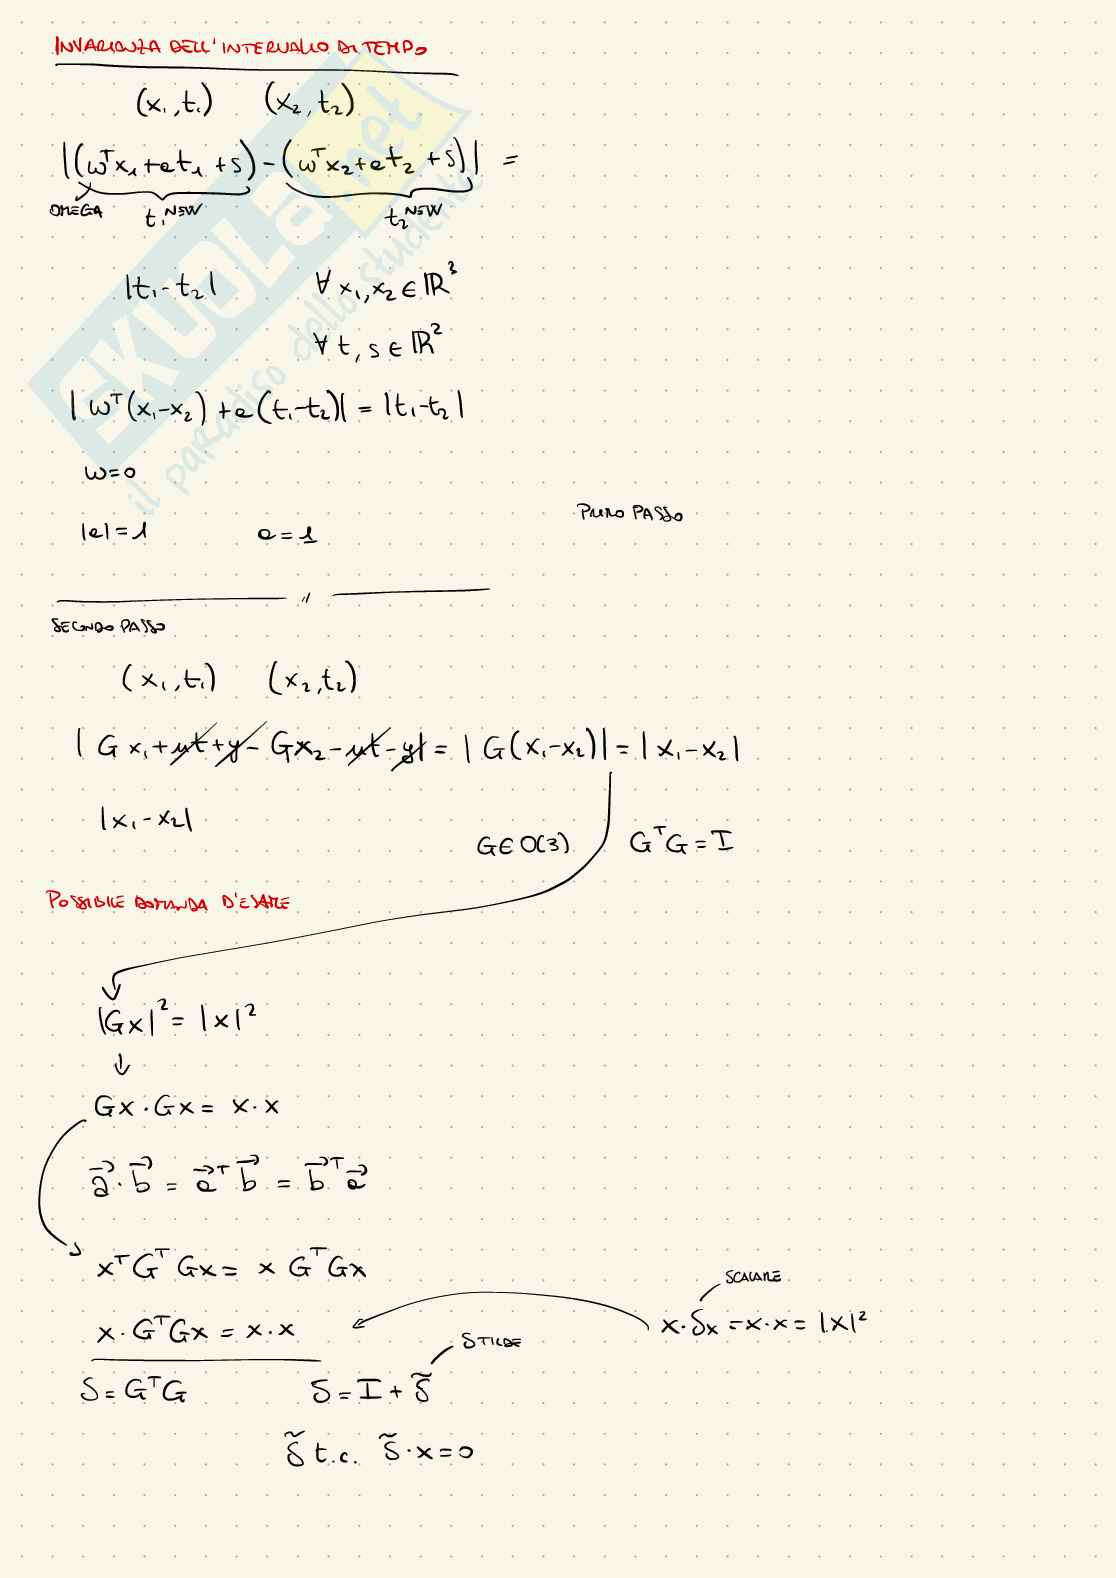 INVARIANZA DELL'INTERVALLO DI TEMPO
(x₁,t₁) (x₂,t₂)
|(ωᵀx₁+at₁+s)-(ωᵀx₂+at₂+s)| =
OMEGA t₁ᴺᴱᵂ t₂ᴺᴱᵂ
|t₁-t₂| ∀ x₁,x₂ ∈ ℝ³
∀ t, s ∈ ℝ²
|ωᵀ(x₁-x₂)+a(t₁-t₂)| = |t₁-t₂|
ω=0
PRIMO PASSO
|a|=1 a=1
SECONDO PASSO
(x₁,t₁) (x₂,t₂)
|Gx₁+ut+y-Gx₂-ut-y| = |G(x₁-x₂)| = |x₁-x₂|
|x₁-x₂|
G∈O(3) GᵀG=I
POSSIBILE DOMANDA D'ESAME
|Gx|²=|x|²
Gx·Gx= x·x
a⃗·b⃗ = a⃗ᵀb⃗ = b⃗ᵀa⃗
xᵀGᵀGx= x GᵀGx
SCALARE
x·GᵀGx = x·x x·Sx =x·x= |x|²
S TILDE
S=GᵀG S=I+S̃
S̃ t.c. S̃·x=0
SKUOLA.net
il paradiso dello studente